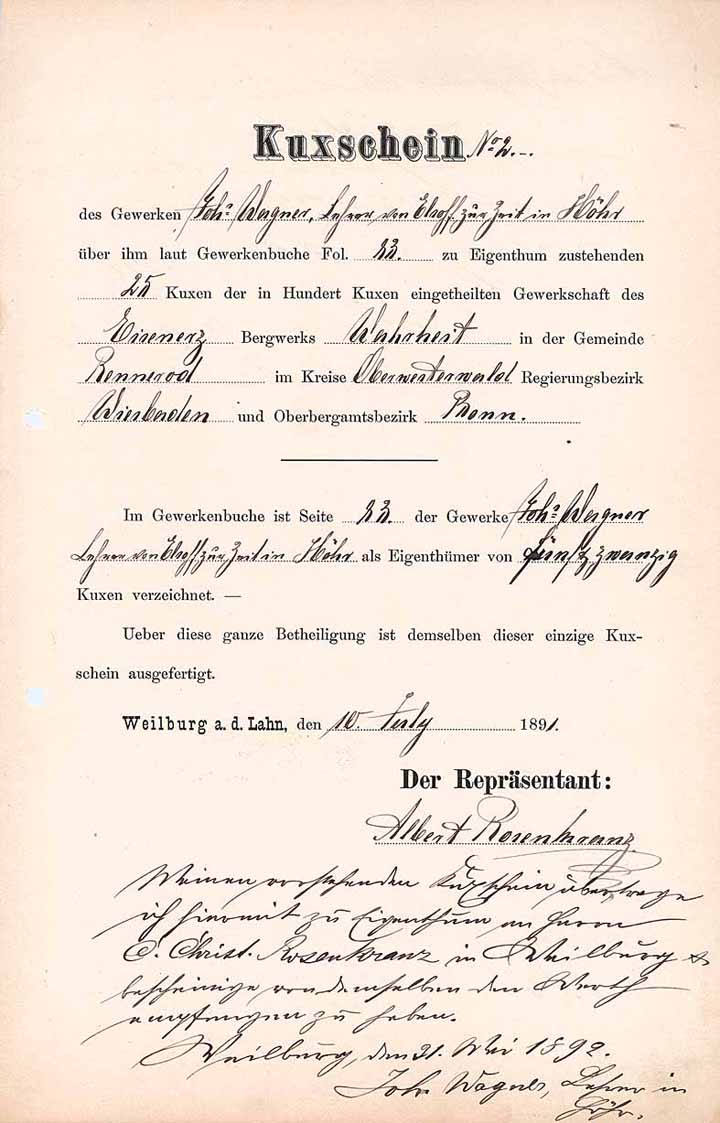 Kuxschein No 2.-.
des Gewerken Johs Wagner, Lehrer von Elsoff zur Zeit in Höhr
über ihm laut Gewerkenbuche Fol. 23. zu Eigenthum zustehenden
25 Kuxen der in Hundert Kuxen eingetheilten Gewerkschaft des
Eisenerz Bergwerks Wahrheit in der Gemeinde
Rennerod im Kreise Oberwesterwald Regierungsbezirk
Wiesbaden und Oberbergamtsbezirk Bonn.
Im Gewerkenbuche ist Seite 23. der Gewerke Johs Wagner
Lehrer von Elsoff zur Zeit in Höhr als Eigenthümer von fünf & zwanzig
Kuxen verzeichnet. —
Ueber diese ganze Betheiligung ist demselben dieser einzige Kux-
schein ausgefertigt.
Weilburg a. d. Lahn, den 10. July 1891.
Der Repräsentant:
Albert Rosenkranz
Meinen vorstehenden Kuxschein übertrage
ich hiermit zu Eigenthum an Herrn
C. Christ. Rosenkranz in Weilburg &
bescheinige von demselben den Werth
empfangen zu haben.
Weilburg, den 31. Mai 1892.
Johs Wagner, Lehrer in
Höhr.